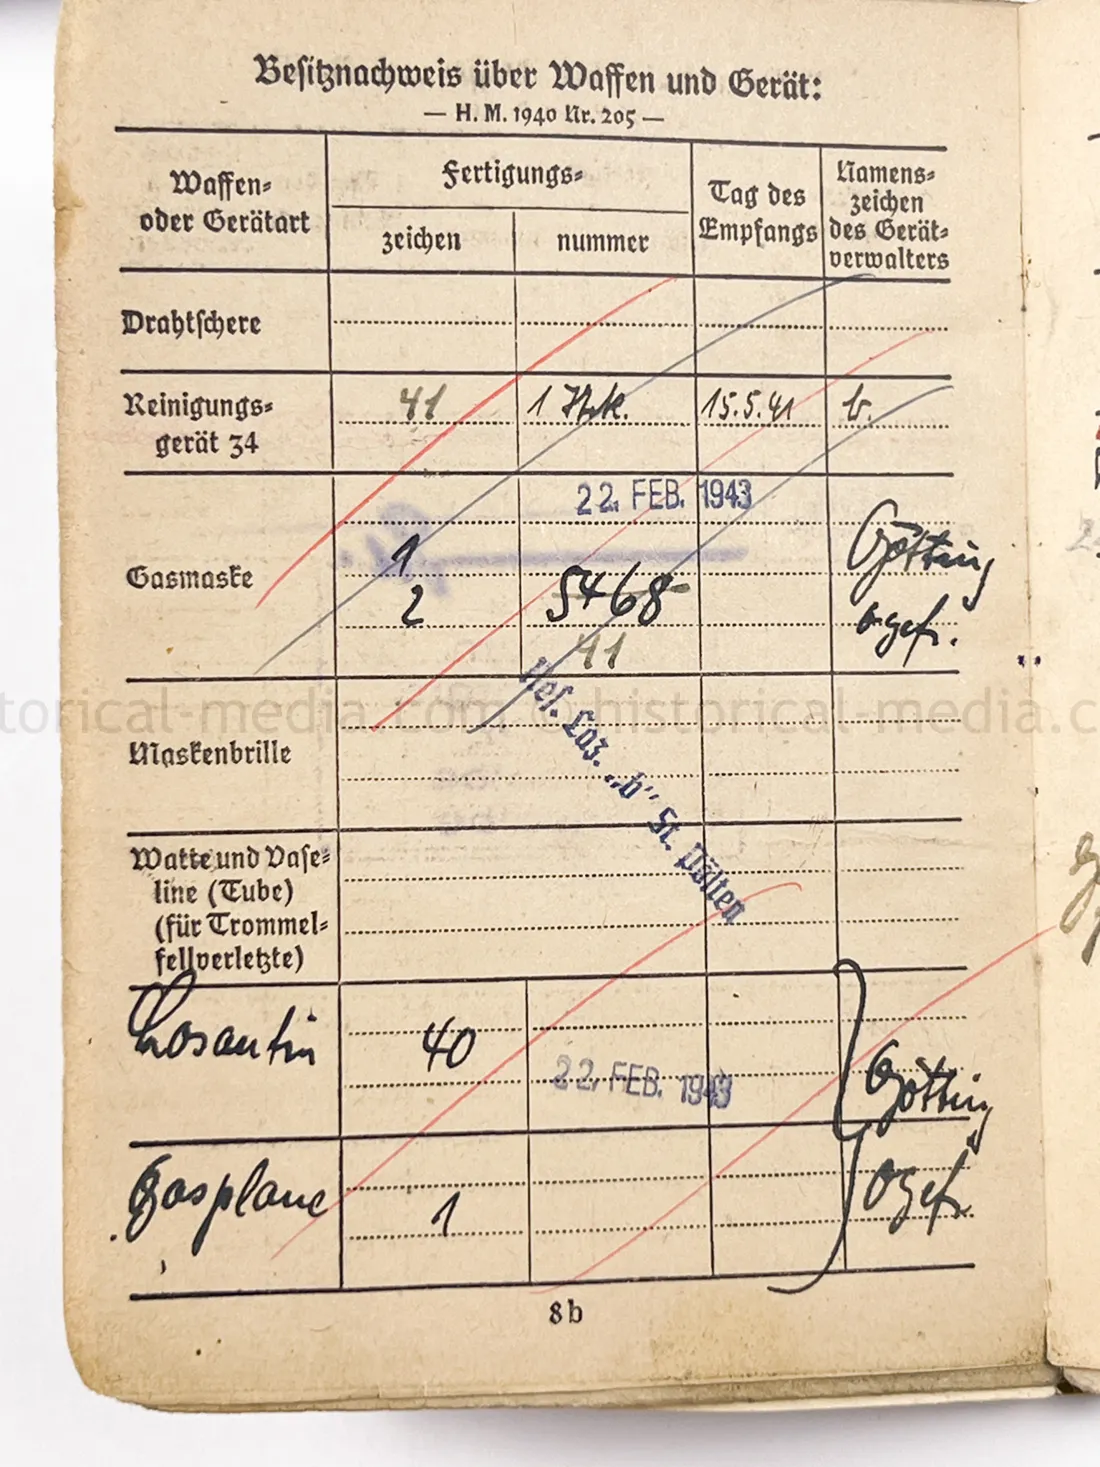 Besitznachweis über Waffen und Gerät:
— H. M. 1940 Nr. 205 —
Waffen-
oder Gerätart
Fertigungs-
zeichen
nummer
Tag des
Empfangs
Namens-
zeichen
des Gerät-
verwalters
Drahtschere
Reinigungs-
gerät 34
41
15.5.41
Gasmaske
22. FEB. 1943
1
2
5468
41
Götting
ogefr.
Res. Laz. „b“ St. Pölten
Maskenbrille
Watte und Vase-
line (Tube)
(für Trommel-
fellverletzte)
Losantin
40
22. FEB. 1943
Götting
Gasplane
1
Ogefr.
8b
torical-media.com ©historical-media.c